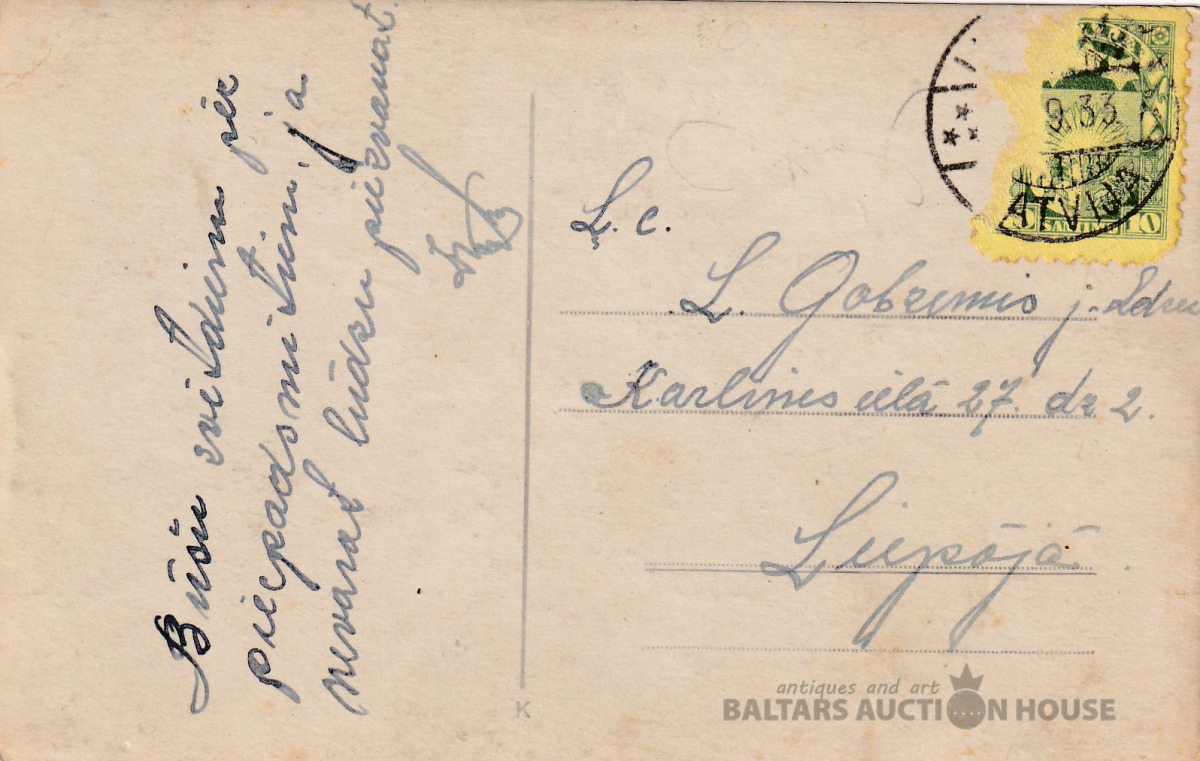 Būšu svētdien pēc
piecpadsmitiem, ja
nevarat lūdzu
L. c.
L. Gobzemis j.
Karlines ielā 27. dz 2.
Liepājā.
9.33
LATVIJA
10
K
antiques and art
BALTARS AUCTION HOUSE